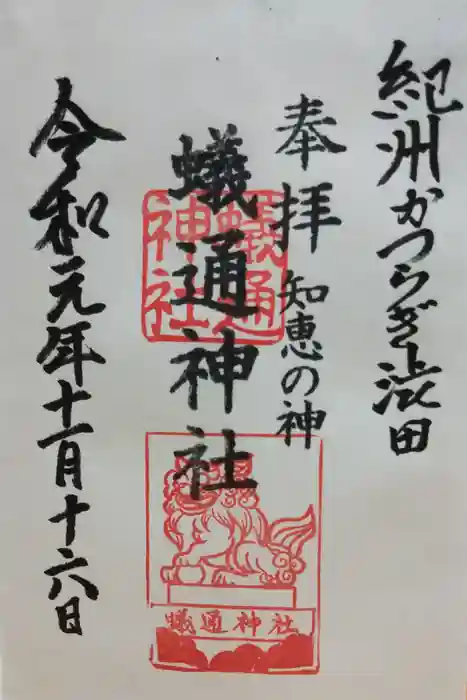 紀州かつらぎ渋田
奉拝
知恵の神
蟻通神社
蟻通
神社
蟻通神社
令和元年十一月十六日